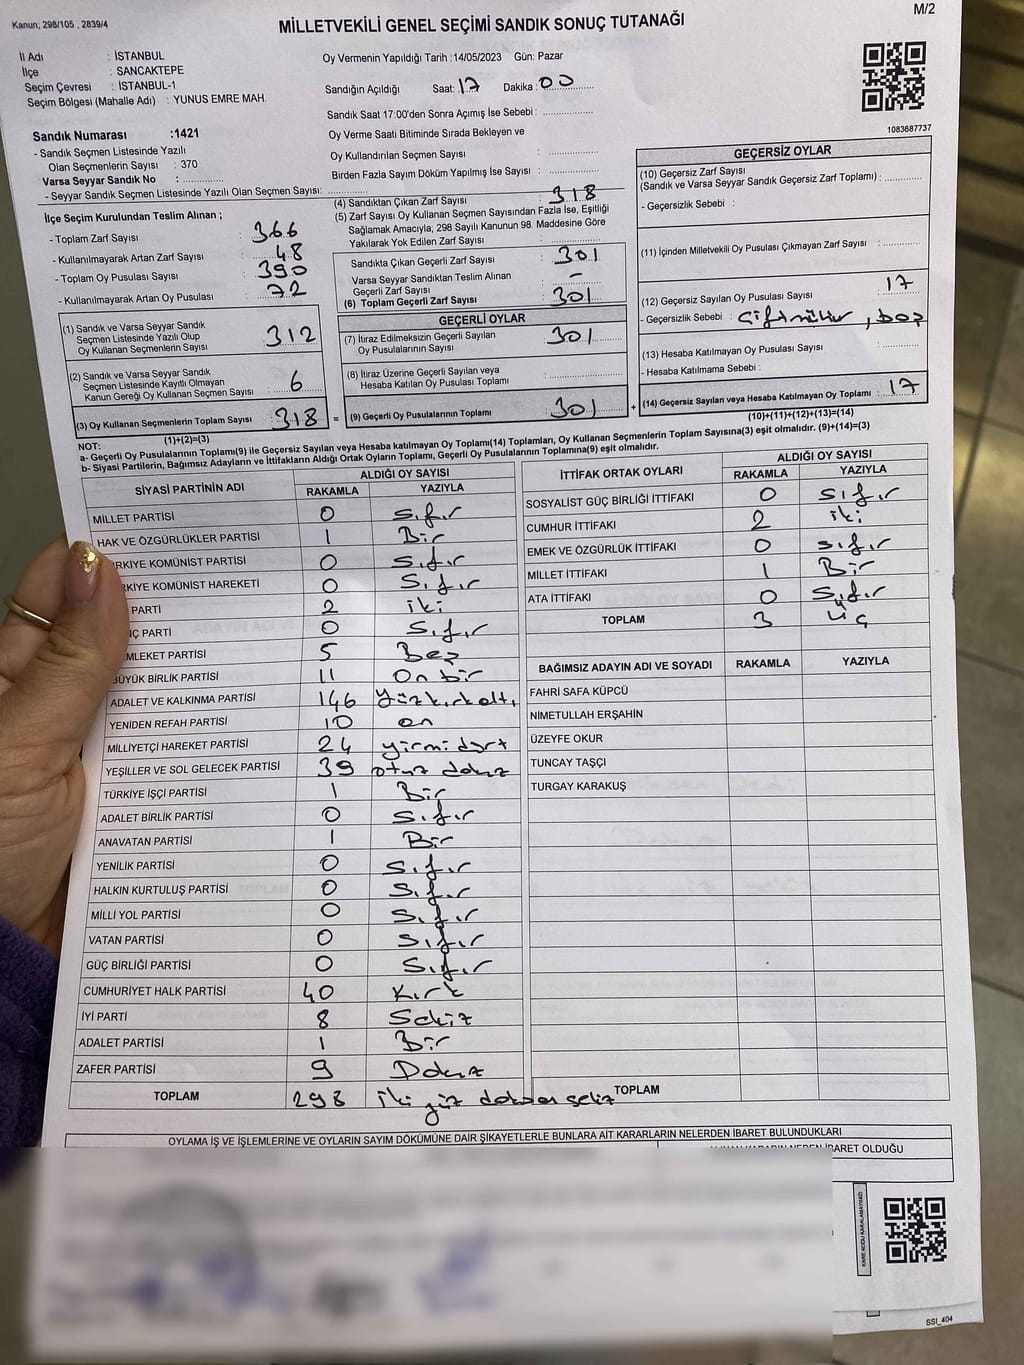 Kanun; 298/105 , 2839/4
MİLLETVEKİLİ GENEL SEÇİMİ SANDIK SONUÇ TUTANAĞI
M/2
İl Adı : İSTANBUL
İlçe : SANCAKTEPE
Seçim Çevresi : İSTANBUL-1
Seçim Bölgesi (Mahalle Adı) : YUNUS EMRE MAH.
Oy Vermenin Yapıldığı Tarih :14/05/2023 Gün: Pazar
Sandığın Açıldığı Saat: 17 Dakika: 00
Sandık Saat 17:00'den Sonra Açımış İse Sebebi :
Oy Verme Saati Bitiminde Sırada Bekleyen ve
Oy Kullandırılan Seçmen Sayısı :
Birden Fazla Sayım Döküm Yapılmış İse Sayısı :
1083687737
Sandık Numarası :1421
- Sandık Seçmen Listesinde Yazılı
Olan Seçmenlerin Sayısı : 370
Varsa Seyyar Sandık No :
- Seyyar Sandık Seçmen Listesinde Yazılı Olan Seçmen Sayısı:
İlçe Seçim Kurulundan Teslim Alınan ;
- Toplam Zarf Sayısı : 366
- Kullanılmayarak Artan Zarf Sayısı : 48
- Toplam Oy Pusulası Sayısı : 390
- Kullanılmayarak Artan Oy Pusulası : 72
(1) Sandık ve Varsa Seyyar Sandık
Seçmen Listesinde Yazılı Olup
Oy Kullanan Seçmenlerin Sayısı : 312
(2) Sandık ve Varsa Seyyar Sandık
Seçmen Listesinde Kayıtlı Olmayan
Kanun Gereği Oy Kullanan Seçmen Sayısı : 6
(3) Oy Kullanan Seçmenlerin Toplam Sayısı : 318 =
(1)+(2)=(3)
(4) Sandıktan Çıkan Zarf Sayısı : 318
(5) Zarf Sayısı Oy Kullanan Seçmen Sayısından Fazla İse, Eşitliği
Sağlamak Amacıyla; 298 Sayılı Kanunun 98. Maddesine Göre
Yakılarak Yok Edilen Zarf Sayısı :
Sandıkta Çıkan Geçerli Zarf Sayısı : 301
Varsa Seyyar Sandıktan Teslim Alınan
Geçerli Zarf Sayısı : -
(6) Toplam Geçerli Zarf Sayısı : 301
GEÇERLİ OYLAR
(7) İtiraz Edilmeksizin Geçerli Sayılan
Oy Pusulalarının Sayısı : 301
(8) İtiraz Üzerine Geçerli Sayılan veya
Hesaba Katılan Oy Pusulası Toplamı :
(9) Geçerli Oy Pusulalarının Toplamı : 301 +
GEÇERSİZ OYLAR
(10) Geçersiz Zarf Sayısı
(Sandık ve Varsa Seyyar Sandık Geçersiz Zarf Toplamı) :
- Geçersizlik Sebebi :
(11) İçinden Milletvekili Oy Pusulası Çıkmayan Zarf Sayısı :
(12) Geçersiz Sayılan Oy Pusulası Sayısı : 17
- Geçersizlik Sebebi : Çift mühür , boş
(13) Hesaba Katılmayan Oy Pusulası Sayısı :
- Hesaba Katılmama Sebebi :
(14) Geçersiz Sayılan veya Hesaba Katılmayan Oy Toplamı : 17
(10)+(11)+(12)+(13)=(14)
NOT:
a- Geçerli Oy Pusulalarının Toplamı(9) ile Geçersiz Sayılan veya Hesaba katılmayan Oy Toplamı(14) Toplamları, Oy Kullanan Seçmenlerin Toplam Sayısına(3) eşit olmalıdır. (9)+(14)=(3)
b- Siyasi Partilerin, Bağımsız Adayların ve İttifakların Aldığı Ortak Oyların Toplamı, Geçerli Oy Pusulalarının Toplamına(9) eşit olmalıdır.
SİYASİ PARTİNİN ADI ALDIĞI OY SAYISI
RAKAMLA YAZIYLA
MİLLET PARTİSİ 0 Sıfır
HAK VE ÖZGÜRLÜKLER PARTİSİ 1 Bir
RKİYE KOMÜNİST PARTİSİ 0 Sıfır
RKİYE KOMÜNİST HAREKETİ 0 Sıfır
PARTİ 2 iki
Ç PARTİ 0 Sıfır
MLEKET PARTİSİ 5 Beş
BÜYÜK BİRLİK PARTİSİ 11 On bir
ADALET VE KALKINMA PARTİSİ 146 Yüzkırkaltı
YENİDEN REFAH PARTİSİ 10 on
MİLLİYETÇİ HAREKET PARTİSİ 24 yirmi dört
YEŞİLLER VE SOL GELECEK PARTİSİ 39 otuz dokuz
TÜRKİYE İŞÇİ PARTİSİ 1 Bir
ADALET BİRLİK PARTİSİ 0 Sıfır
ANAVATAN PARTİSİ 1 Bir
YENİLİK PARTİSİ 0 Sıfır
HALKIN KURTULUŞ PARTİSİ 0 Sıfır
MİLLİ YOL PARTİSİ 0 Sıfır
VATAN PARTİSİ 0 Sıfır
GÜÇ BİRLİĞİ PARTİSİ 0 Sıfır
CUMHURİYET HALK PARTİSİ 40 Kırk
İYİ PARTİ 8 Sekiz
ADALET PARTİSİ 1 Bir
ZAFER PARTİSİ 9 Dokuz
TOPLAM 298 iki yüz doksan sekiz
İTTİFAK ORTAK OYLARI ALDIĞI OY SAYISI
RAKAMLA YAZIYLA
SOSYALİST GÜÇ BİRLİĞİ İTTİFAKI 0 Sıfır
CUMHUR İTTİFAKI 2 iki
EMEK VE ÖZGÜRLÜK İTTİFAKI 0 Sıfır
MİLLET İTTİFAKI 1 Bir
ATA İTTİFAKI 0 Sıfır
TOPLAM 3 üç
BAĞIMSIZ ADAYIN ADI VE SOYADI RAKAMLA YAZIYLA
FAHRİ SAFA KÜPCÜ
NİMETULLAH ERŞAHİN
ÜZEYFE OKUR
TUNCAY TAŞÇI
TURGAY KARAKUŞ
TOPLAM
OYLAMA İŞ VE İŞLEMLERİNE VE OYLARIN SAYIM DÖKÜMÜNE DAİR ŞİKAYETLERLE BUNLARA AİT KARARLARIN NELERDEN İBARET BULUNDUKLARI
İBARET OLDUĞU
KARE KODU KARALAMAYINIZ!
SSI_404